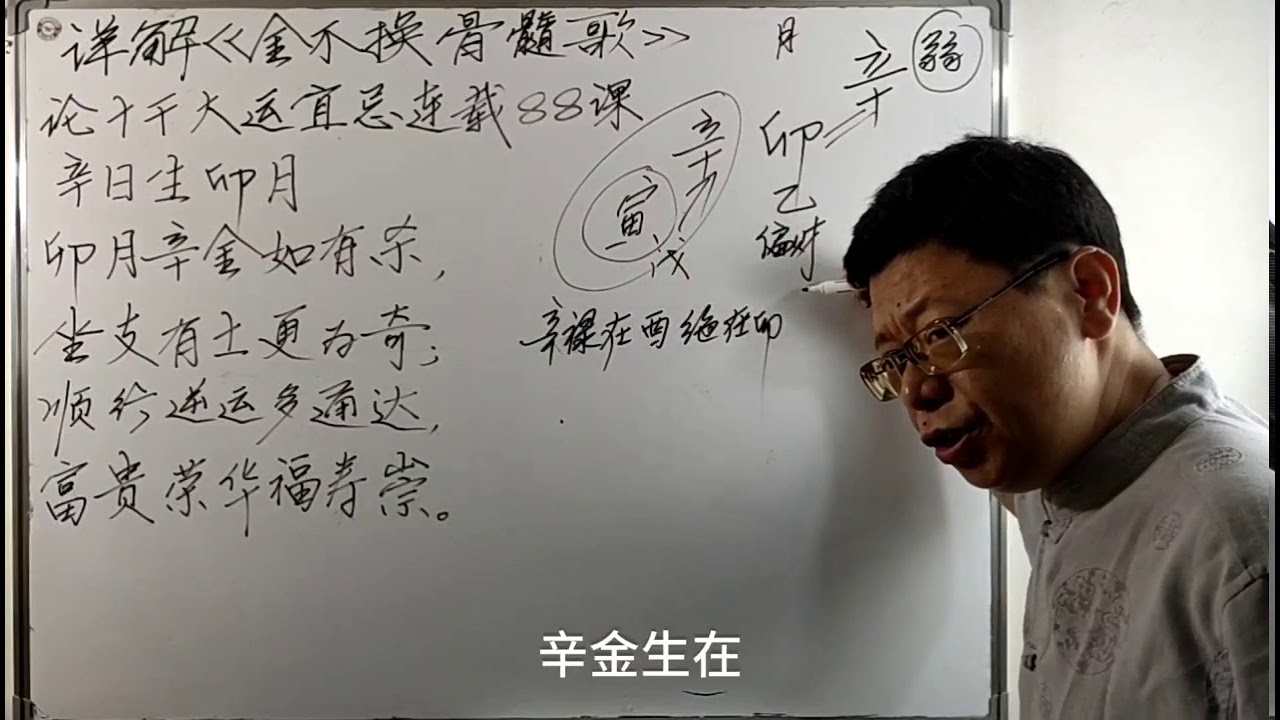 详解《金不换骨髓歌》
论十干大运宜忌连载88课
辛日生卯月
卯月辛金如有杀,
坐支有土更为奇;
顺行逆运多通达,
富贵荣华福寿崇。
月
辛
弱
卯
乙
偏财
辛
寅
戊
辛禄在酉绝在卯
辛金生在